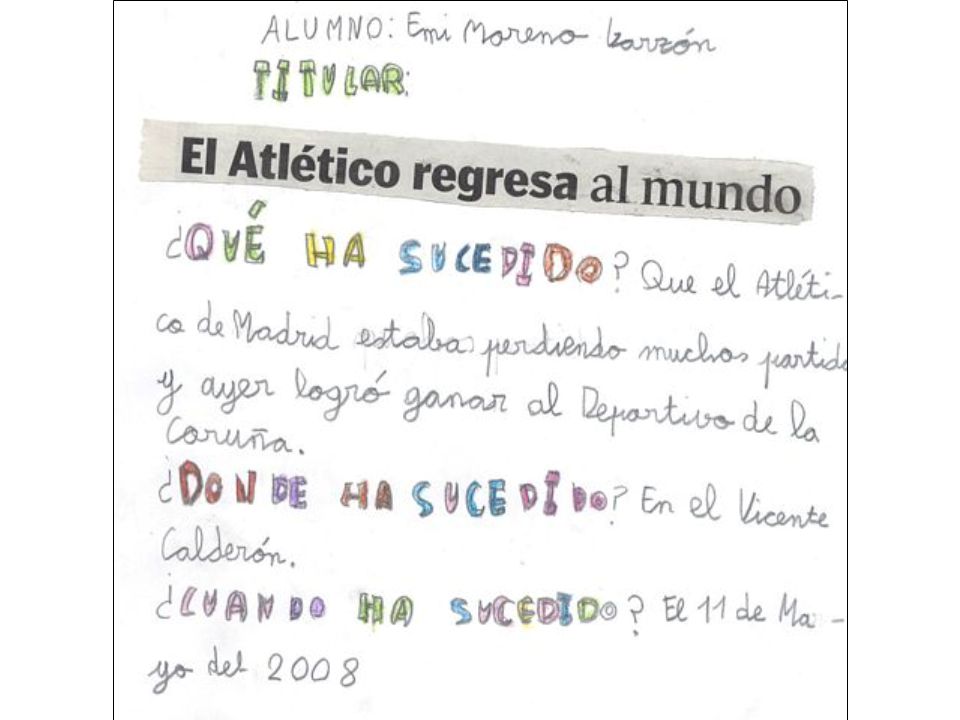 ALUMNO: Emi Moreno Izarzón
TITULAR:
El Atlético regresa al mundo
¿QUÉ HA SUCEDIDO? Que el Atléti-
co de Madrid estaba perdiendo muchos partido
y ayer logró ganar al Deportivo de la
Coruña.
¿DONDE HA SUCEDIDO? En el Vicente
Calderón.
¿CUANDO HA SUCEDIDO? El 11 de Ma-
yo del 2008